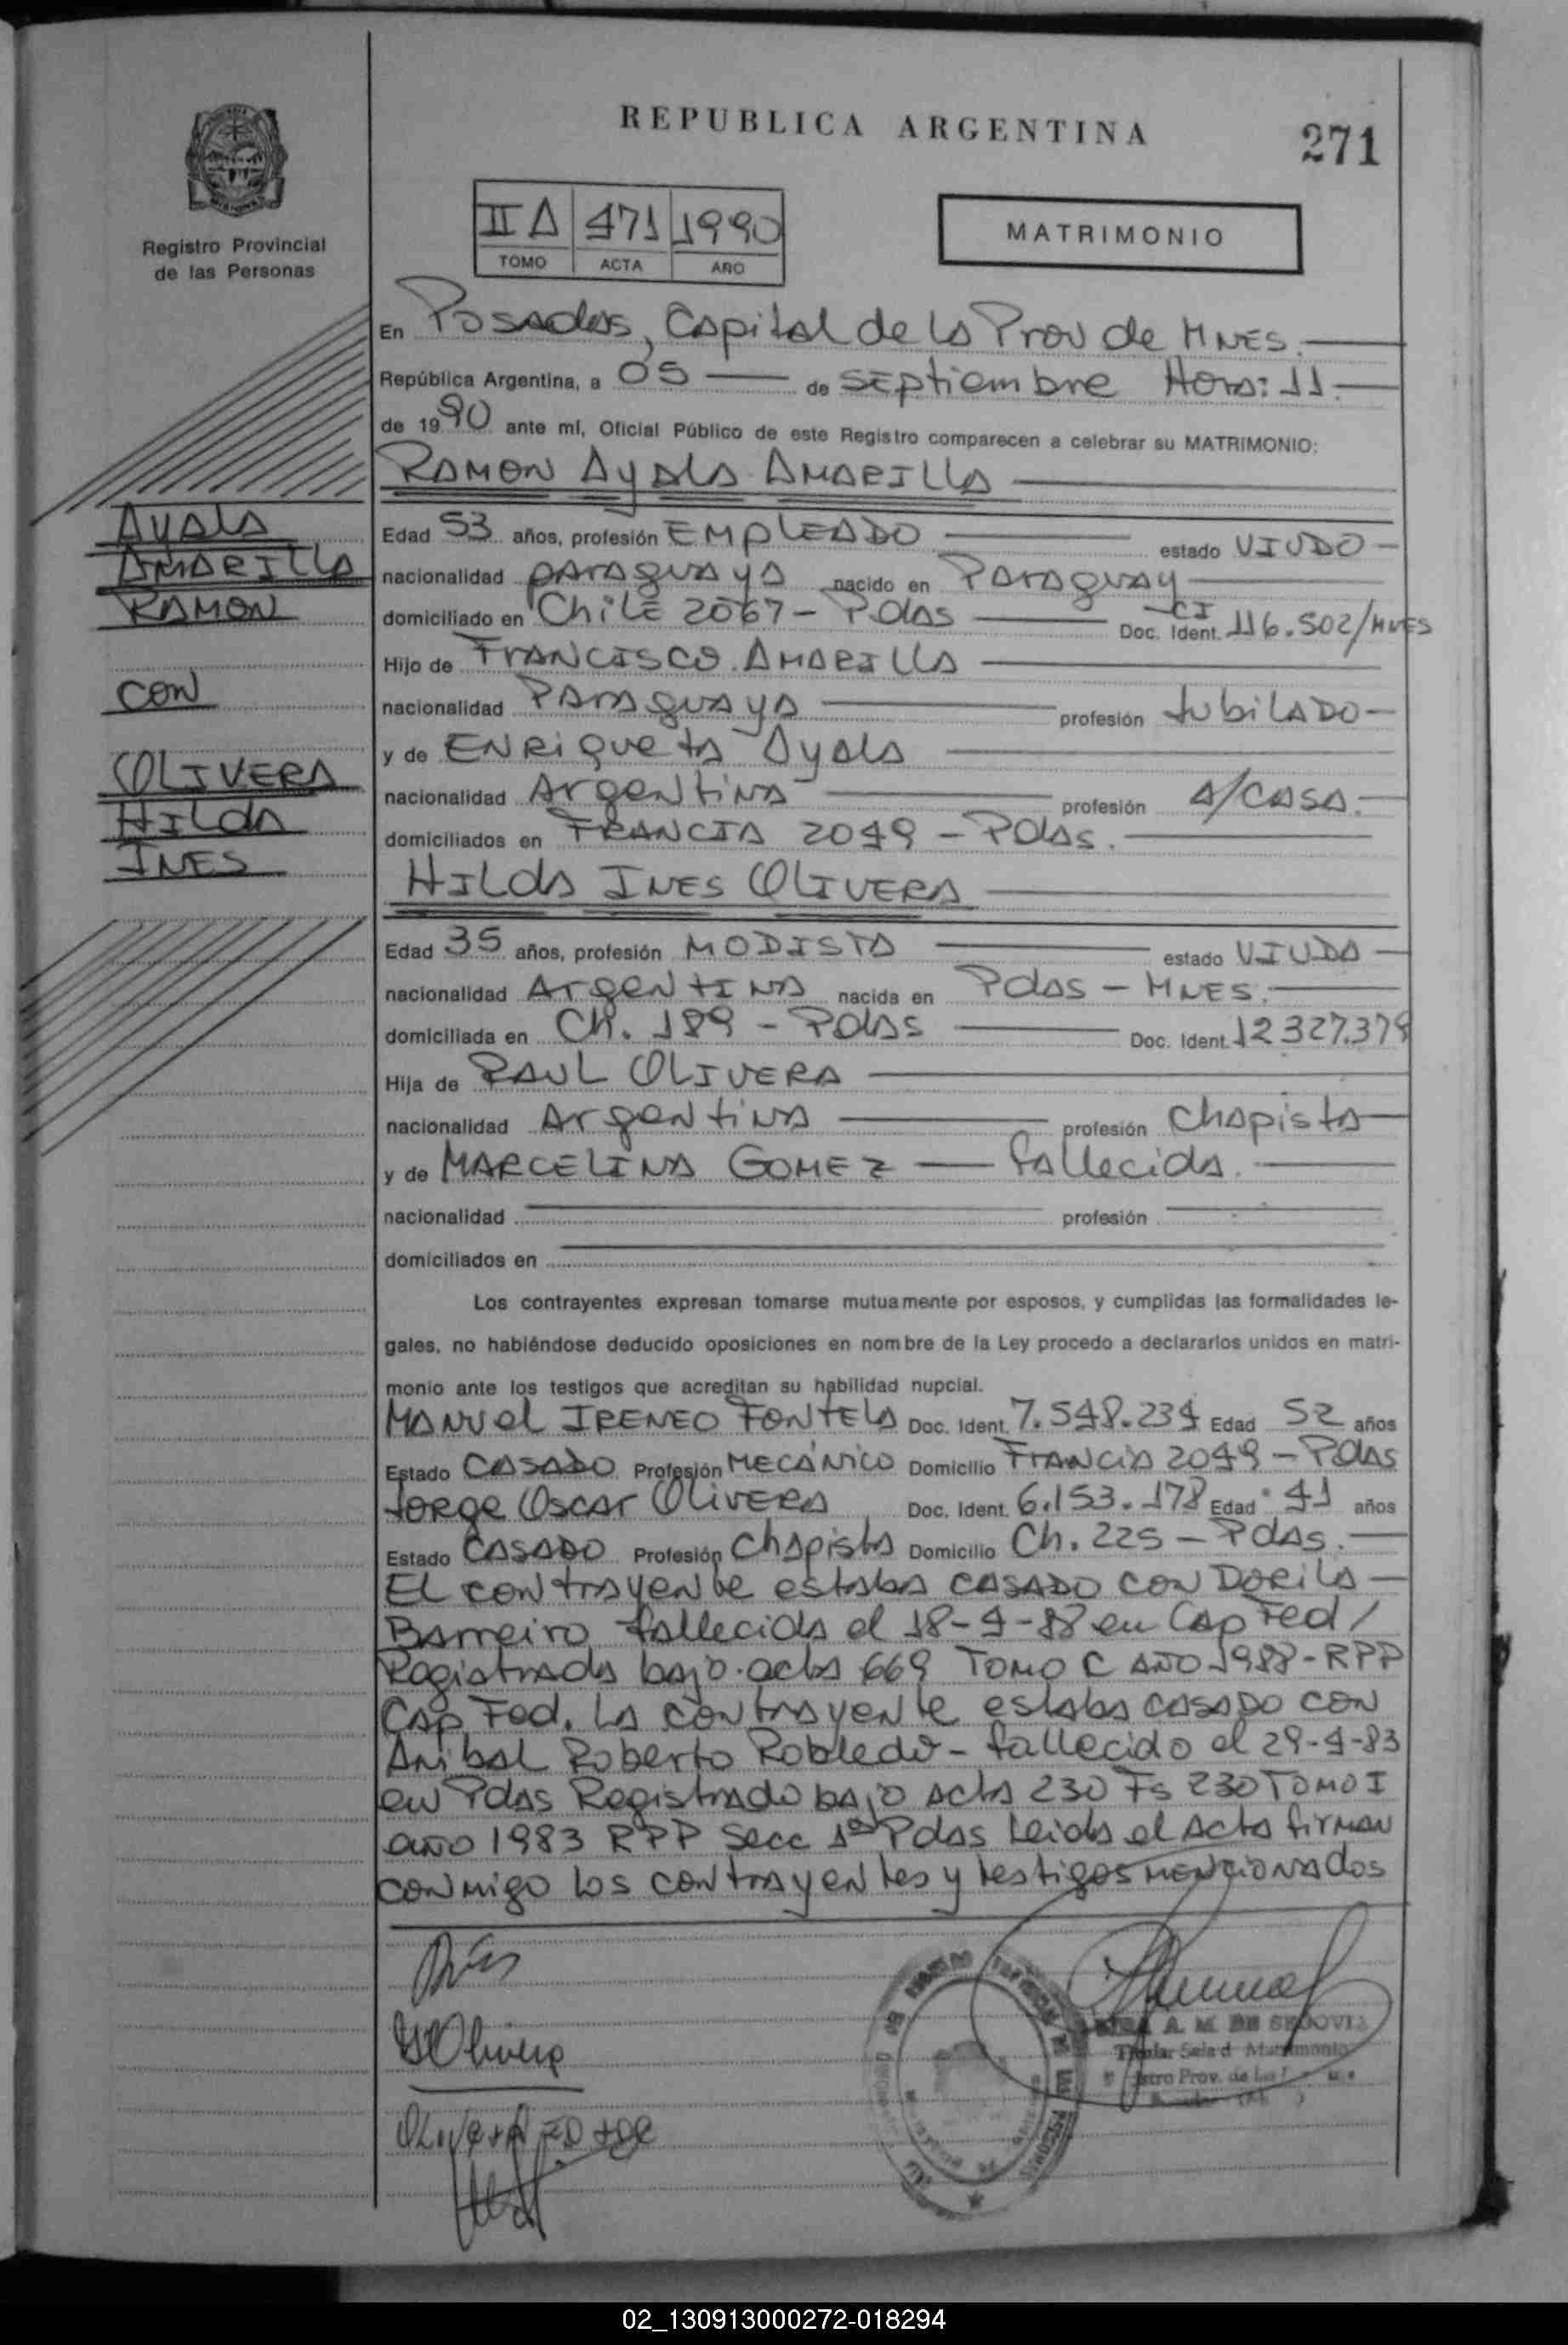 REPUBLICA ARGENTINA
271
Registro Provincial
de las Personas
II A 471 1990
TOMO ACTA AÑO
MATRIMONIO
En Posadas, Capital de la Prov de MNES.
República Argentina, a 05 de septiembre Hora: 11.
de 1990 ante mí, Oficial Público de este Registro comparecen a celebrar su MATRIMONIO:
RAMON Ayala AMARILLA
Ayala
AMARILLA
RAMON
con
OLIVERA
HILda
INES
Edad 53 años, profesión EMPLEADO estado VIUDO
nacionalidad paraguaya nacido en Paraguay
domiciliado en Chile 2067 - Pdas Doc. Ident. CI 116.502/MNES
Hijo de FRANCISCO AMARILLA
nacionalidad Paraguaya profesión Jubilado
y de ENRiqueta Ayala
nacionalidad Argentina profesión A/CASA.
domiciliados en FRANCIA 2049 - Pdas.
HILda INES OLIVERA
Edad 35 años, profesión MODISTA estado VIUDA
nacionalidad Argentina nacida en Pdas - MNES.
domiciliada en Ch. 189 - Pdas Doc. Ident. 12327.379
Hija de RAUL OLIVERA
nacionalidad Argentina profesión Chapista
y de MARCELINA GOMEZ fallecida.
nacionalidad profesión
domiciliados en
Los contrayentes expresan tomarse mutuamente por esposos, y cumplidas las formalidades le-
gales, no habiéndose deducido oposiciones en nombre de la Ley procedo a declararlos unidos en matri-
monio ante los testigos que acreditan su habilidad nupcial.
MANUEL IRENEO FONTELA Doc. Ident. 7.548.234 Edad 52 años
Estado CASADO Profesión MECÁNICO Domicilio Francia 2049 - Pdas
Jorge Oscar OLIVERA Doc. Ident. 6.153.178 Edad 41 años
Estado CASADO Profesión Chapista Domicilio Ch. 225 - Pdas.
El contrayente estaba CASADO CON DORILA
Barreiro fallecida el 18-4-88 en Cap Fed/
Registrada bajo acta 669 TOMO C AÑO 1988 - RPP
Cap. Fed. La contrayente estaba casado con
Anibal Roberto Robledo - fallecido el 29-4-83
en Pdas Registrado bajo acta 230 Fs 230 TOMO I
año 1983 RPP Secc 1ª Pdas Leida el Acta firman
conmigo los contrayentes y testigos mencionados
Olivera
A. M. DE SEGOVIA
02_130913000272-018294